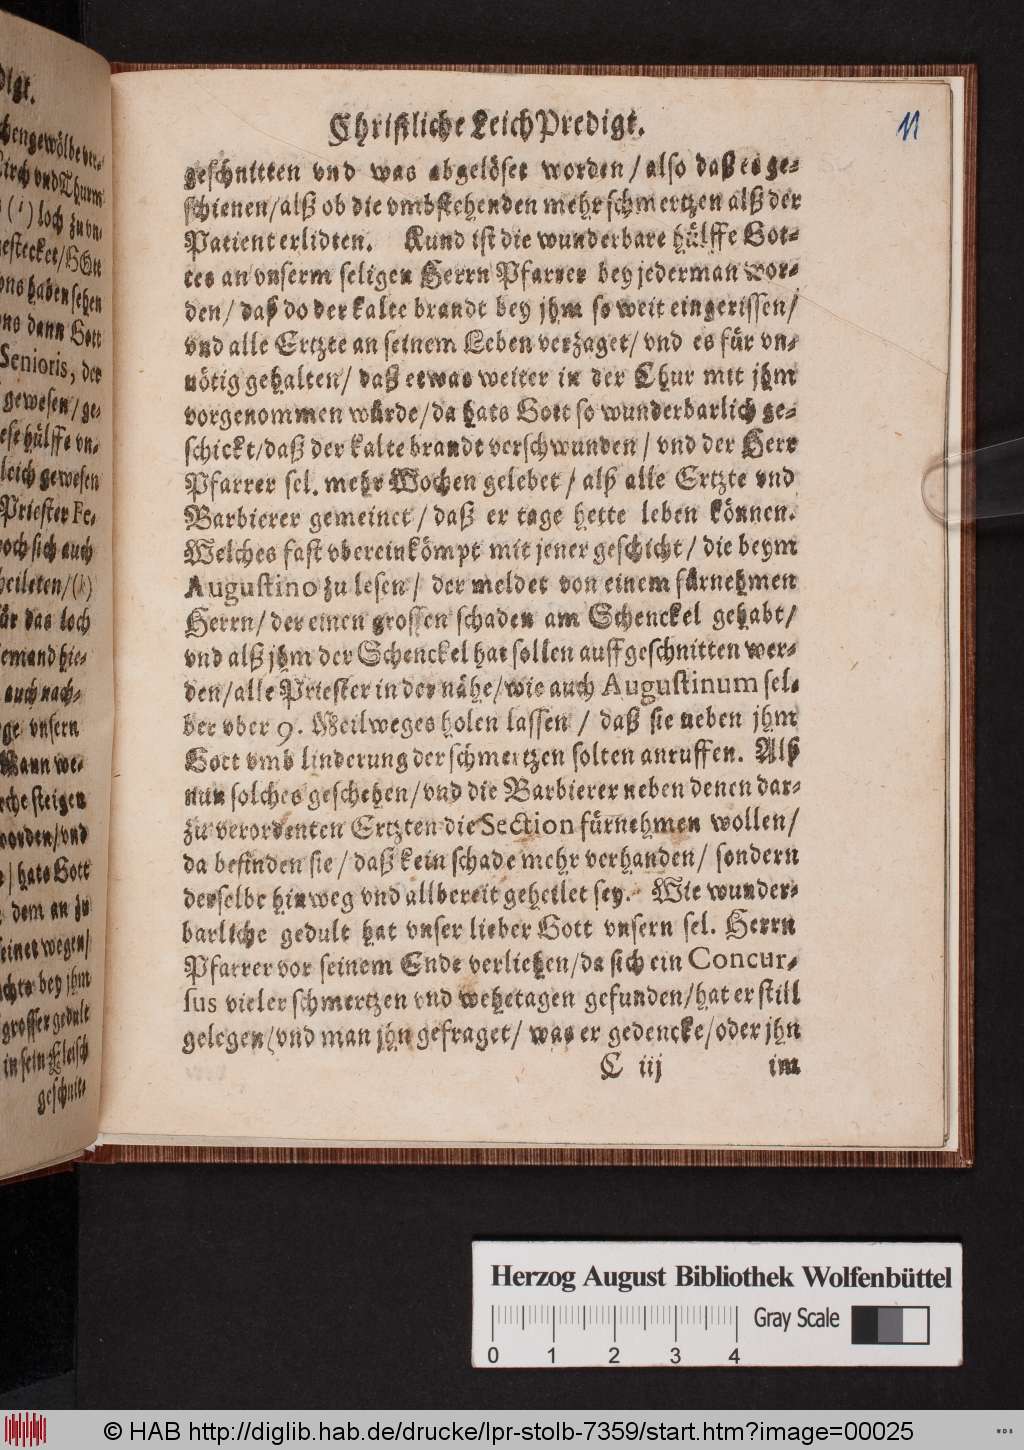 Christliche LeichPredigt.
11
geschnitten vnd was abgelöset worden / also daß es ge-
schienen / alß ob die vmbstehenden mehr schmertzen alß der
Patient erlidten. Kund ist die wunderbare hülffe Got-
tes an vnserm seligen Herrn Pfarrer bey jederman wor-
den / daß do der kalte brandt bey jhm so weit eingerissen /
vnd alle Ertzte an seinem Leben verzaget / vnd es für vn-
nötig gehalten / daß etwas weiter in der Chur mit jhm
vorgenommen würde / da hats Gott so wunderbarlich ge-
schickt / daß der kalte brandt verschwunden / vnd der Herr
Pfarrer sel. mehr Wochen gelebet / alß alle Ertzte vnd
Barbierer gemeinet / daß er tage hette leben können.
Welches fast vbereinkömpt mit jener geschicht / die beym
Augustino zu lesen / der meldet von einem fürnehmen
Herrn / der einen grossen schaden am Schenckel gehabt /
vnd alß jhm der Schenckel hat sollen auffgeschnitten wer-
den / alle Priester in der nähe / wie auch Augustinum sel-
ber vber 9. Meilweges holen lassen / daß sie neben jhm
Gott vmb linderung der schmertzen solten anruffen. Alß
nun solches geschehen / vnd die Barbierer neben denen dar-
zu verordenten Ertzten die Section fürnehmen wollen /
da befinden sie / daß kein schade mehr verhanden / sondern
derselbe hinweg vnd allbereit geheilet sey. Wie wunder-
barliche gedult hat vnser lieber Gott vnsern sel. Herrn
Pfarrer vor seinem Ende verliehen / da sich ein Concur-
sus vieler schmertzen vnd wehetagen gefunden / hat er still
gelegen / vnd man jhn gefraget / was er gedencke / oder jhn
C iij im
digt.
chengewölbe ver-
Kirch vnd Thurm
(i) loch zu vn-
gestecket / GOtt
vns haben sehen
vns dann Gott
Senioris, der
gewesen / ge-
hülffe vn-
gleich gewesen
Priester Fe-
och sich auch
theileten / (k)
für das loch
jemand hie-
auch nach-
vnsern
Mann we-
steigen
worden / vnd
/ hats Gott
dem an zu
seinet wegen /
bey jhm
grosser gedult
in sein Fleisch
geschnit-
Herzog August Bibliothek Wolfenbüttel
Gray Scale
0 1 2 3 4
© HAB http://diglib.hab.de/drucke/lpr-stolb-7359/start.htm?image=00025